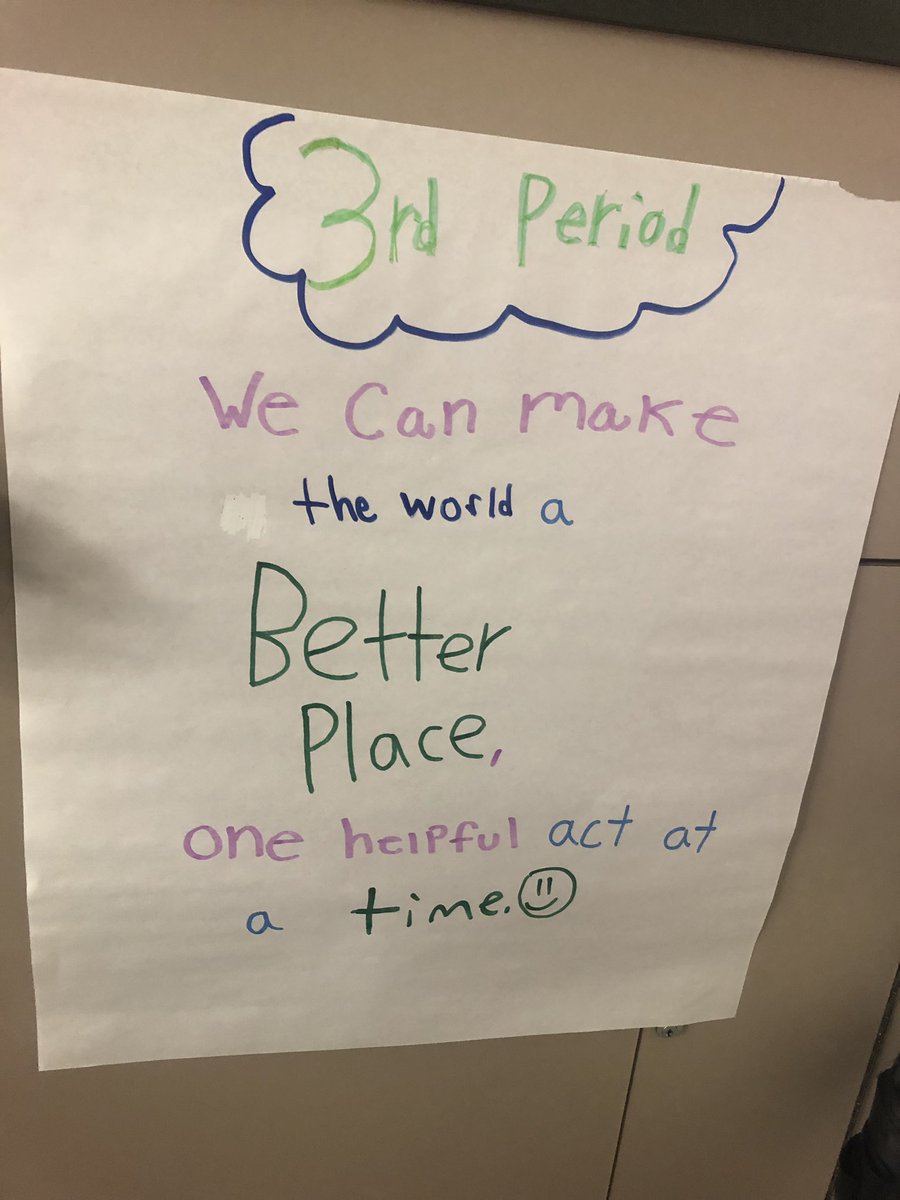 3rd Period
We Can make
the world a
Better
Place,
one helpful act at
a time.